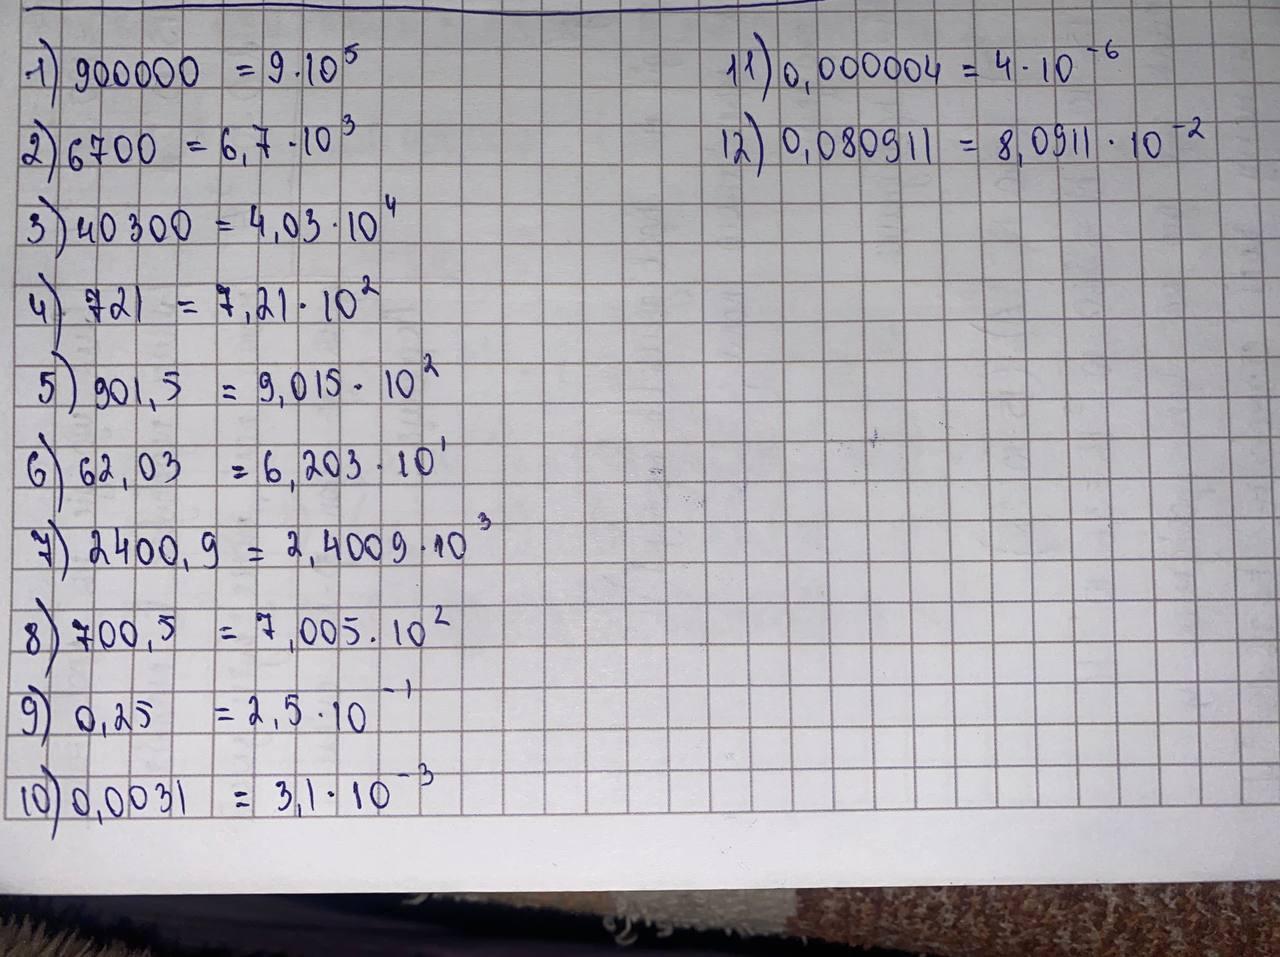 1) 900000 = 9·10⁵
2) 6700 = 6,7·10³
3) 40300 = 4,03·10⁴
4) 721 = 7,21·10²
5) 901,5 = 9,015·10²
6) 62,03 = 6,203·10¹
7) 2400,9 = 2,4009·10³
8) 700,5 = 7,005·10²
9) 0,25 = 2,5·10⁻¹
10) 0,0031 = 3,1·10⁻³
11) 0,000004 = 4·10⁻⁶
12) 0,080911 = 8,0911·10⁻²